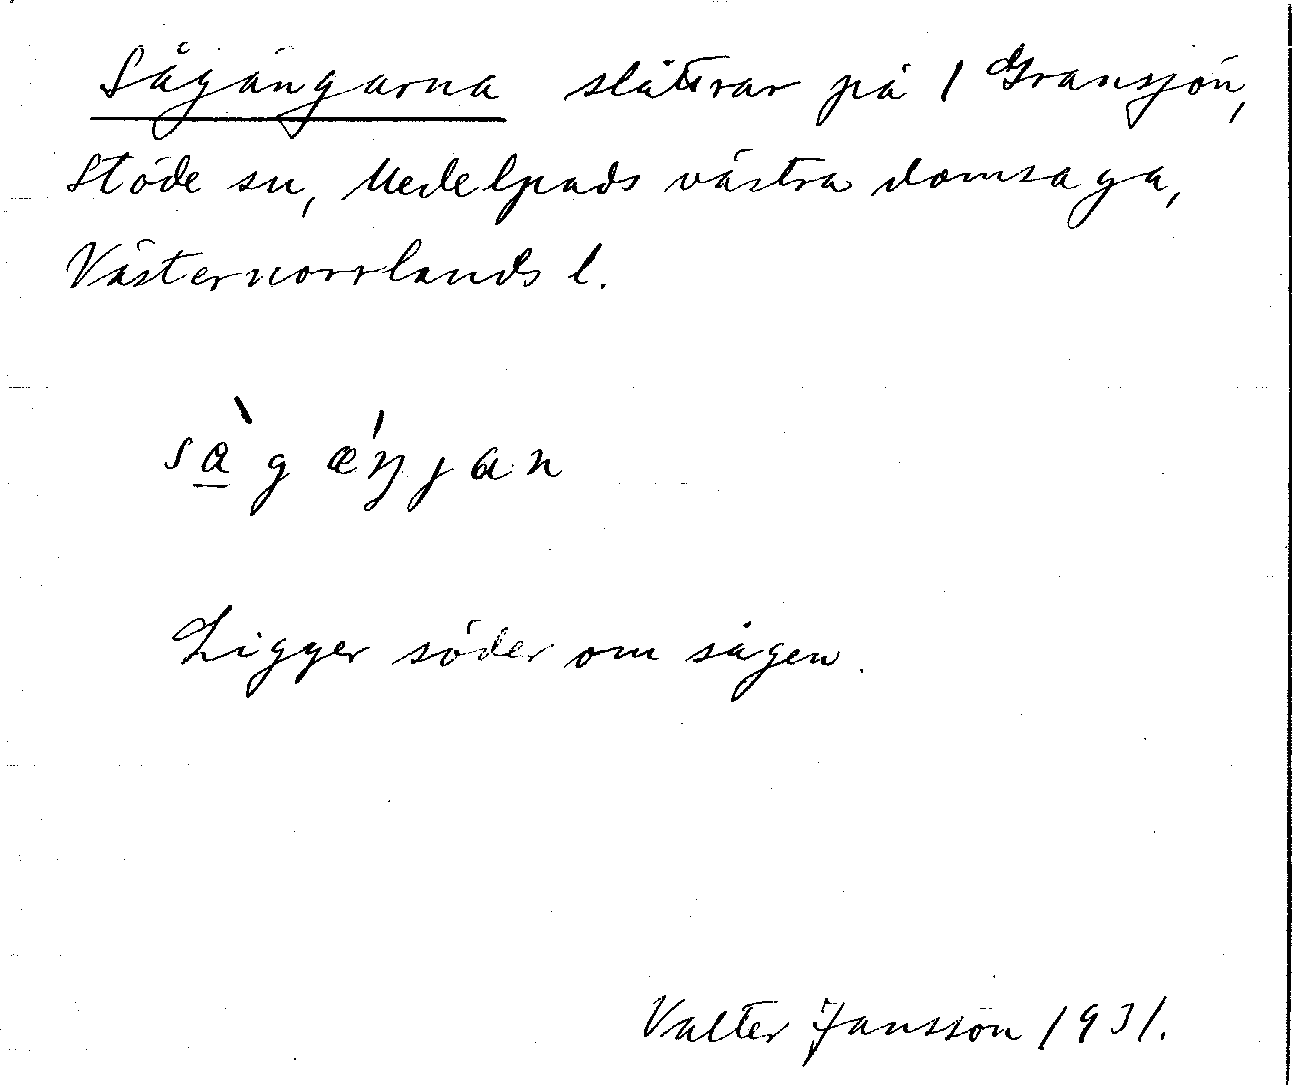 Sågängarna slåttrar på 1 Gransjön,
Stöde sn, Medelpads västra domsaga,
Västernorrlands l.
sà̲gǽŋjan
Ligger söder om sågen.
Valter Jansson 1931.